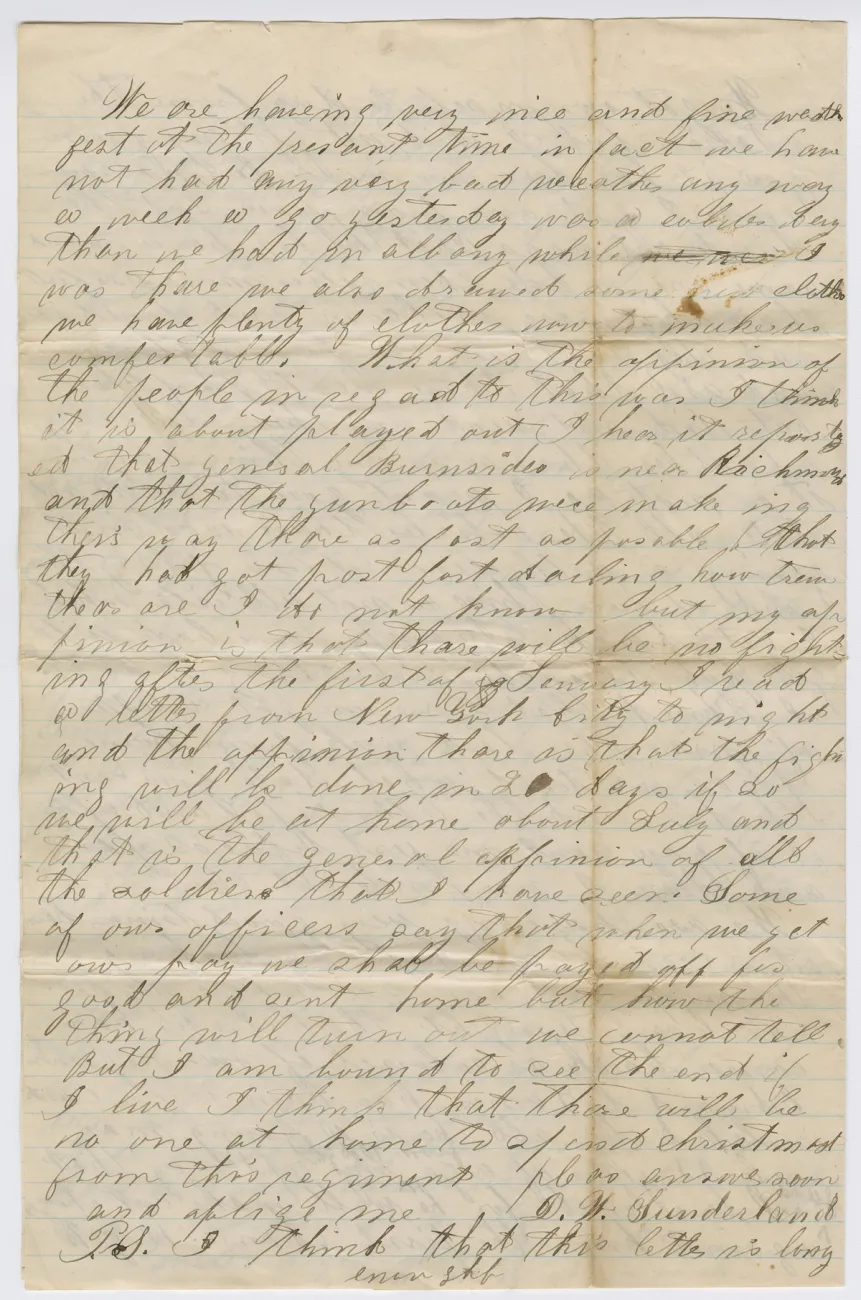 We are haveing very nice and fine weath
gest at the presant time in fact we have
not had any very bad weeather any way
a week a go yesterday was a colder day
than we had in albany while we were I
was thare we also drawed some new cloths
we have plenty of clothes now to make us
comfertabl. What is the oppinion of
the people in regard to this war I think
it is about played out I hear it report
ed that general Burnsides is near Richmond
and that the gunboats were make ing
there way thare as fast as posable & that
they had got past fort darling how trew
theas are I do not know but my op
pinion is that thare will be no fight-
ing after the first of January I read
a letter from New York City to night
and the oppinion thare is that the figh
ing will be done in 20 days if so
we will be at home about July and
that is the general oppinion of all
the soldiers that I have seen. Some
of our officers say that when we get
our pay we shal be payed off for
good and sent home but how the
thing will turn out we connot tell.
But I am bound to see the end if
I live I think that thare will be
no one at home to spend christmas
from this regiment pleas answer soon
and aplige me D. W. Sunderland
P.S. I think that this letter is long
enough